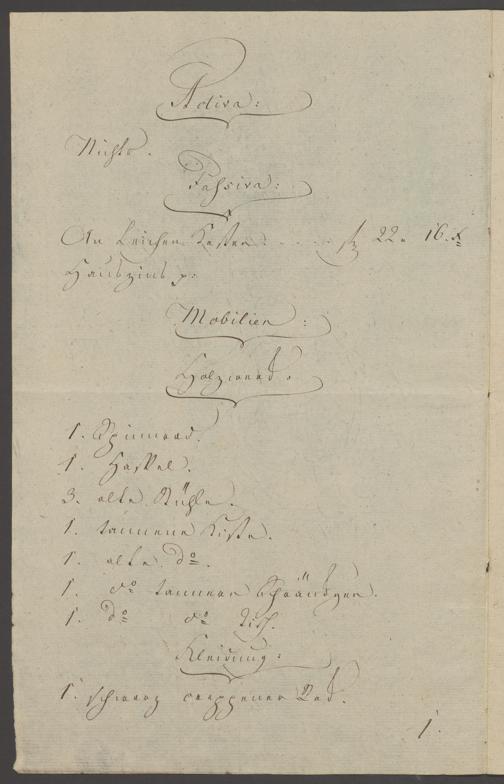 Activa:
Nichts.
Passiva:
An Leichen Kosten: . . . . . f 22. 16. x
Hauszins p.
Mobilien:
Holzwerk.
1. Spinnrad.
1. Haspel.
3. alte Stühle.
1. tannene Kiste.
1. alte do.
1. do tannen Schränkgen.
1. do do Tisch.
Kleidung:
1. schwarz Rock.
1.